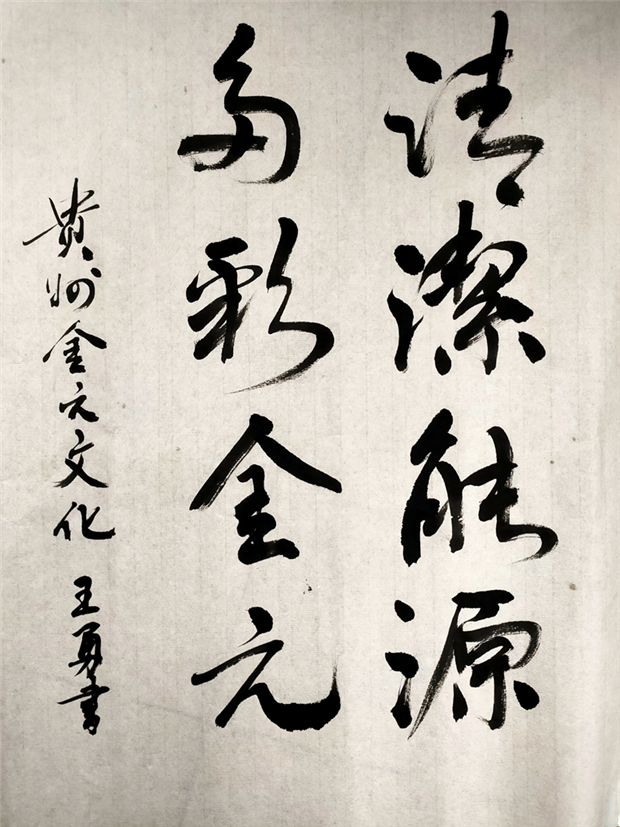 清潔能源
多彩金元
贵州金元文化 王勇書